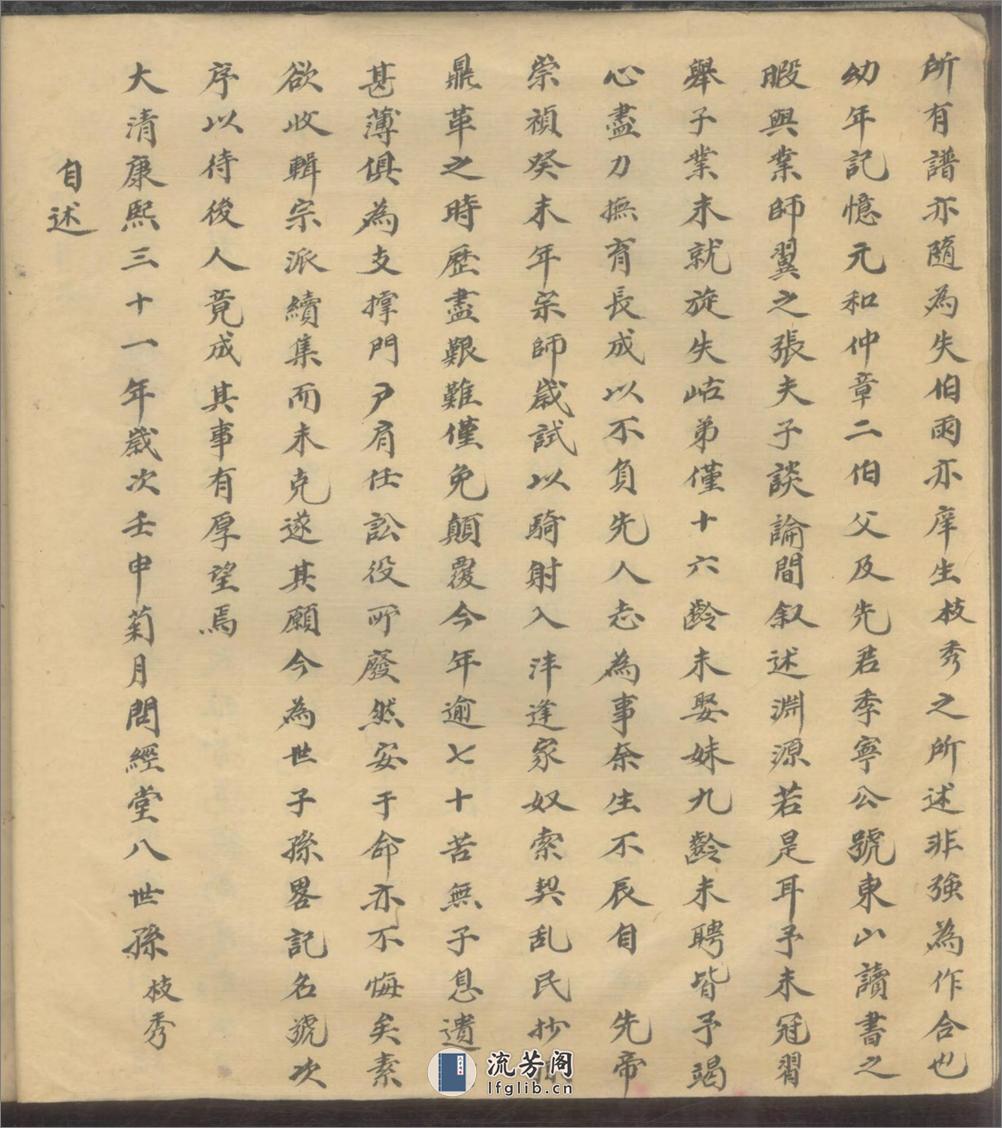 所有譜亦隨為失伯雨亦庠生枝秀之所述非強為作合也
幼年記憶元和仲章二伯父及先君季寧公號東山讀書之
暇與業師翼之張夫子談論間叙述淵源若是耳予未冠習
舉子業未就旋失岵弟僅十六齡未娶妹九齡未聘皆予竭
心盡力撫育長成以不負先人志為事奈生不辰自 先帝
崇禎癸未年宗師歲試以騎射入泮逢家奴索契乱民抄
鼎革之時歷盡艱難僅免顛覆今年逾七十苦無子息遺
甚薄俱為支撑門戶肩任訟役所廢然安于命亦不悔矣素
欲收輯宗派續集而未克遂其願今為世子孫畧記名號次
序以待後人竟成其事有厚望焉
大清康熙三十一年歲次壬申菊月問經堂八世孫 枝秀
自述
流芳阁
lfglib.cn